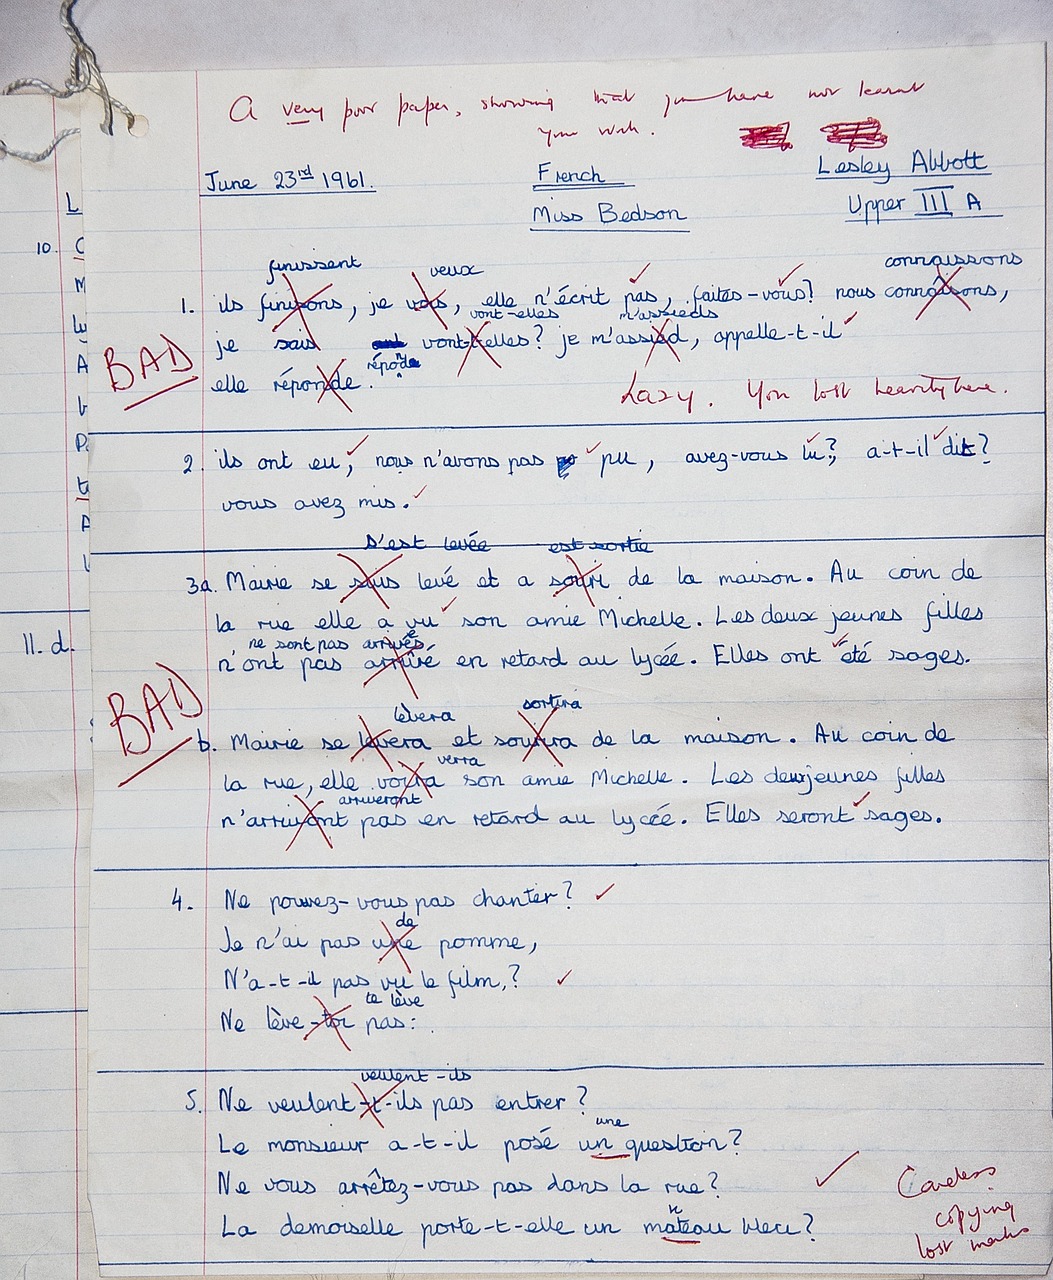 A very poor paper, showing that you have not learnt
your work.
June 23rd 1961.
French
Lesley Abbott
Miss Bedson
Upper III A
finissent veux connaissons
1. ils finisons, je vois, elle n'écrit pas, faites-vous? nous connaisons,
vont-elles m'assieds
BAD
je sais vont-t-elles? je m'assied, appelle-t-il
répond
elle réponde.
Lazy. You lost heavily here.
2. ils ont eu, nous n'avons pas pu, avez-vous lu?, a-t-il dit?
vous avez mis.
s'est levée est sortie
3a. Mairie se suis levé et a souri de la maison. Au coin de
la rue elle a vu son amie Michelle. Les deux jeunes filles
ne sont pas arrivées
n'ont pas arrivé en retard au lycée. Elles ont été sages.
BAD
lèvera sortira
b. Mairie se levera et sourira de la maison. Au coin de
verra
la rue, elle voira son amie Michelle. Les deux jeunes filles
arriveront
n'arrivont pas en retard au lycée. Elles seront sages.
4. Ne pouvez-vous pas chanter?
de
Je n'ai pas une pomme,
N'a-t-il pas vu le film,?
te lève
Ne lève-toi pas:
veulent-ils
5. Ne veulent-t-ils pas entrer?
une
Le monsieur a-t-il posé un question?
Ne vous arrêtez-vous pas dans la rue?
n
La demoiselle porte-t-elle un mateau bleu?
Careless
copying
lost marks
10.
L
C
M
A
11. d.